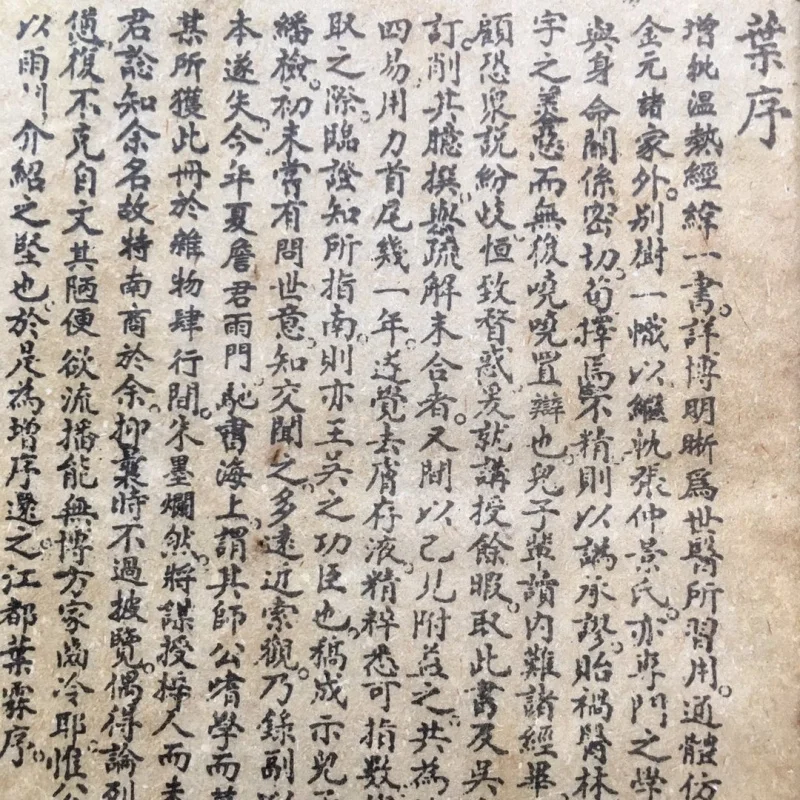 葉序
增批溫熱經緯一書。詳博明晰爲世醫所習用。通體仿
金元諸家外。別樹一幟以繼軌張仲景氏。亦專門之學
與身命關係密切。苟擇焉不精則以譌承謬。貽禍醫林
字之差愆而無復嘵嘵置辯也。兒子輩讀內難諸經畢
顧恐衆說紛歧恒致瞀惑。爰就講授餘暇。取此書及吳
訂削其臆撰與疏解未合者。又間以己見附益之。共爲
四易用力首尾幾一年。遂覺去膚存液。精粹悉可指數
取之際。臨證知所指南。則亦王吳之功臣也。稿成示兒
繙檢。初未嘗有問世意。知交聞之。多遠近索觀。乃錄副
本遂失。今年夏詹君雨門。馳書海上。謂其師公嗜學而
某所獲此冊於雜物肆行間。朱墨爛然。將謀授梓人而未
君諗知余名。故特南商於余。抑曩時不過披覽。偶得論列
復不克自文其陋。便欲流播能無博方家齒冷耶。惟
以雨門介紹之堅也。於是爲增序還之。江都葉霖序。